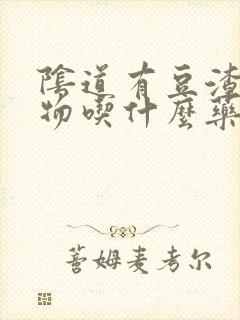 陰道有豆渣
物喫什麼藥
蕾姆麦考尔